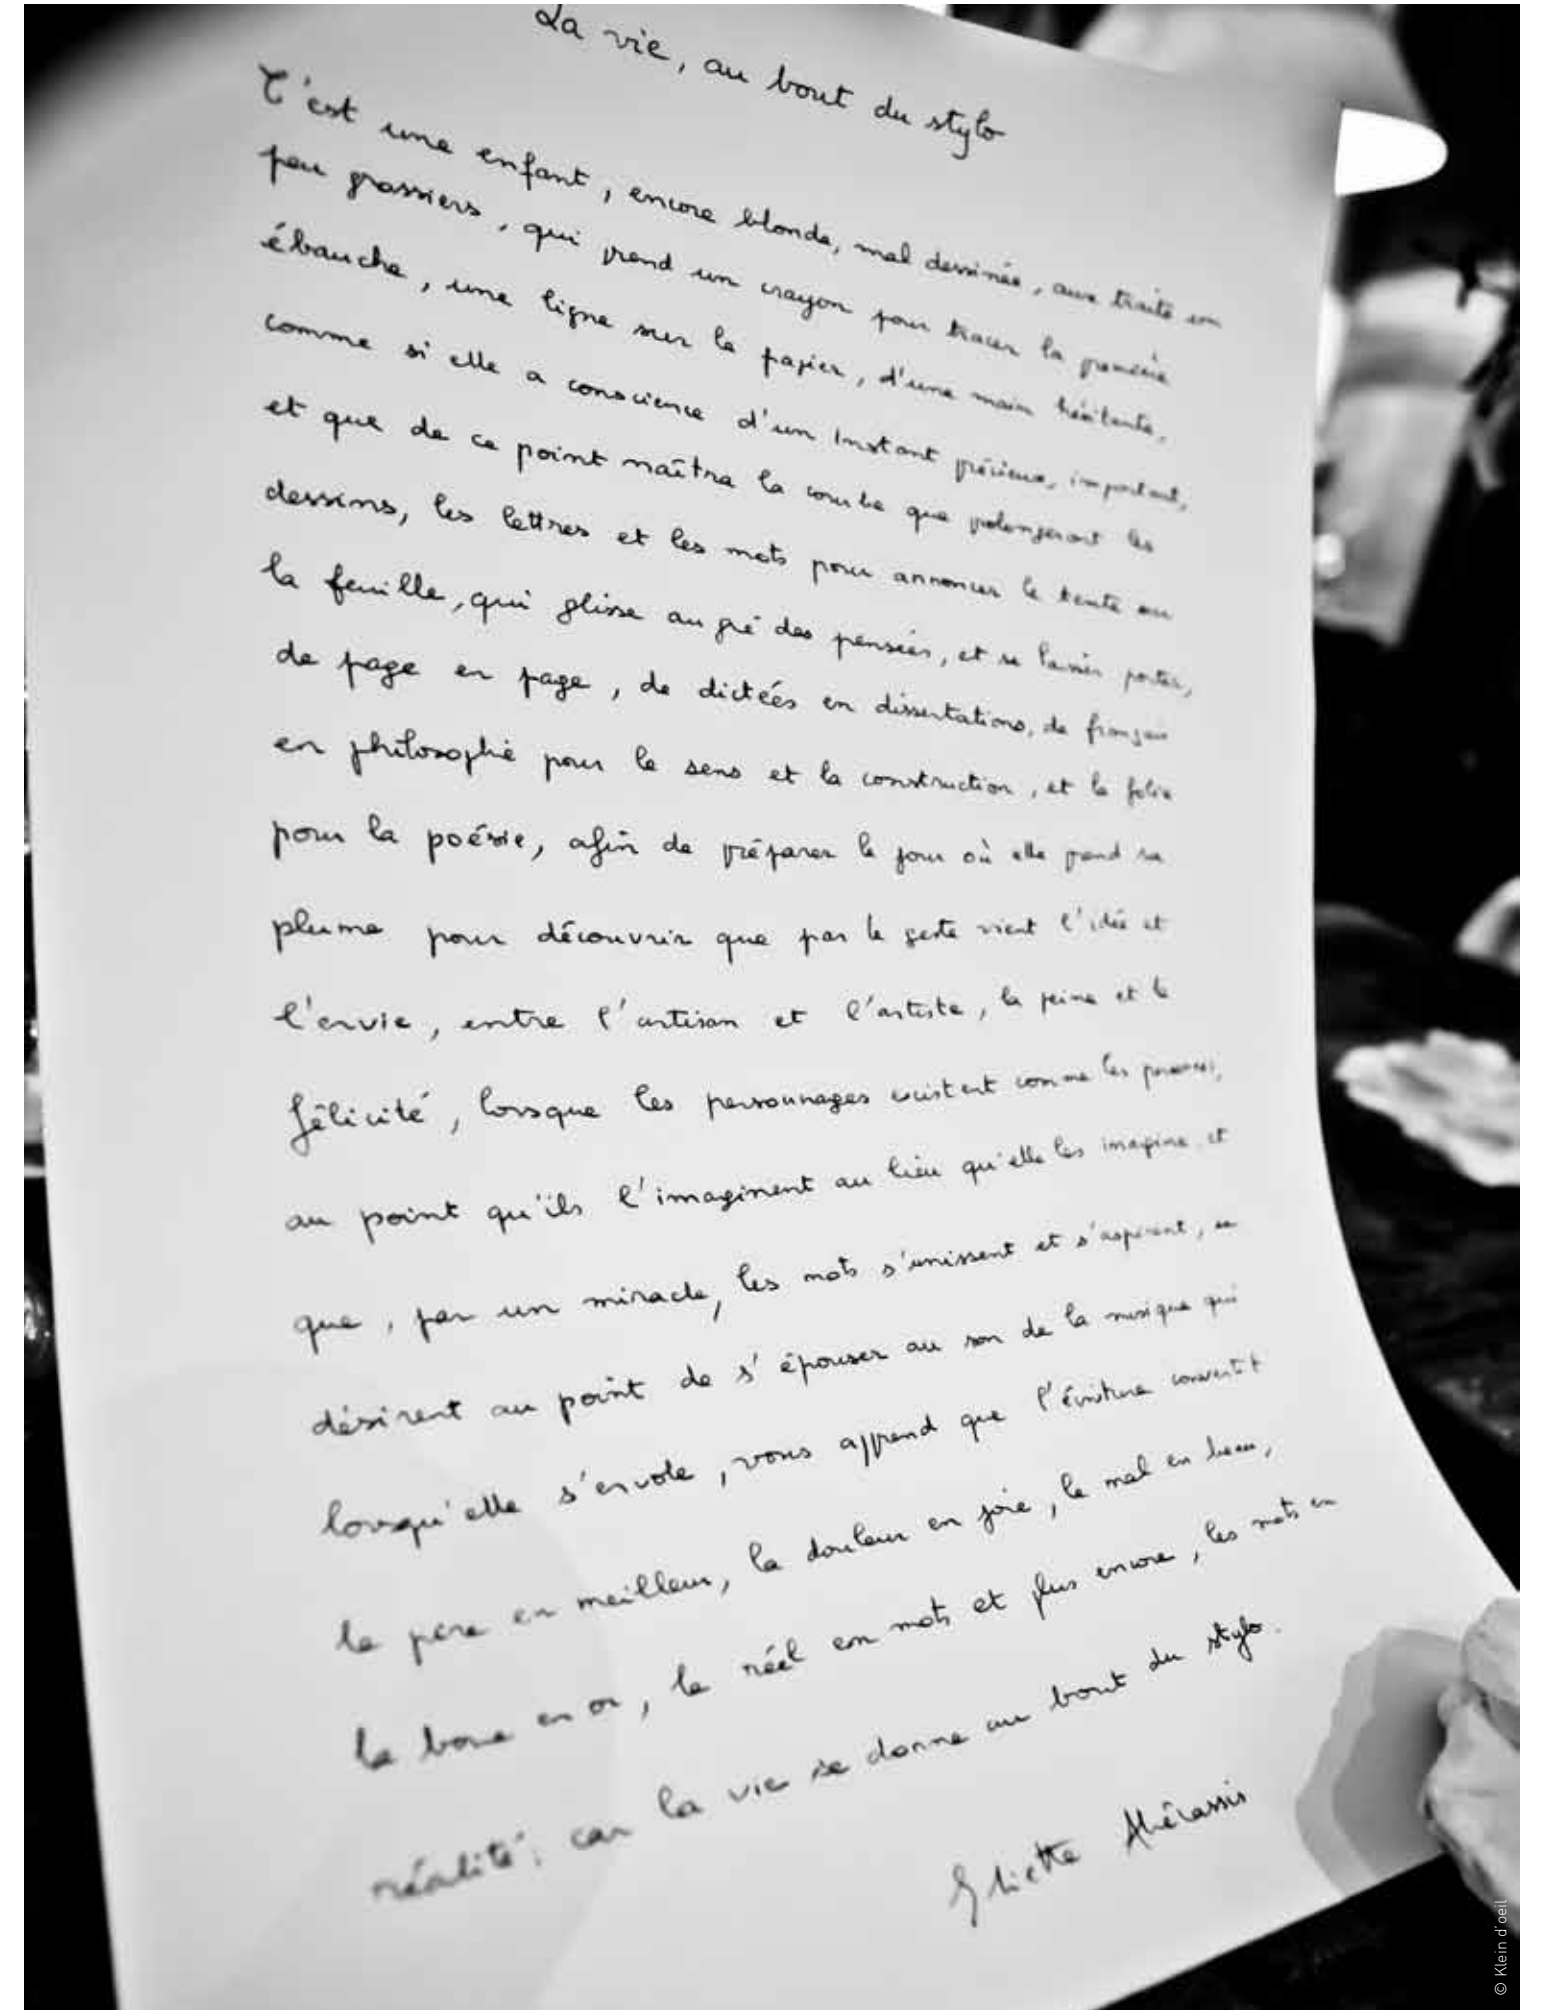 La vie, au bout du stylo
C'est une enfant, encore blonde, mal dessinée, aux traits un
peu grossiers, qui prend un crayon pour tracer la première
ébauche, une ligne sur le papier, d'une main hésitante,
comme si elle a conscience d'un instant précieux, important,
et que de ce point naîtra la courbe que prolongeront les
dessins, les lettres et les mots pour annoncer le texte ou
la feuille, qui glisse au gré des pensées, et se laisser porter,
de page en page, de dictées en dissertations, de français
en philosophie pour le sens et la construction, et la folie
pour la poésie, afin de préparer le jour où elle prend sa
plume pour découvrir que par le geste vient l'idée et
l'envie, entre l'artisan et l'artiste, la peine et la
félicité, lorsque les personnages existent comme les
au point qu'ils l'imaginent au lieu qu'elle les imagine et
que, par un miracle, les mots s'unissent et s'aspirent, se
désirent au point de s'épouser au son de la musique qui
lorsqu'elle s'envole, vous apprend que l'écriture convertit
le pire en meilleur, la douleur en joie, le mal en beau,
la boue en or, le réel en mots et plus encore, les mots en
réalité, car la vie se donne au bout du stylo.
Eliette Abécassis
© Klein d'oeil